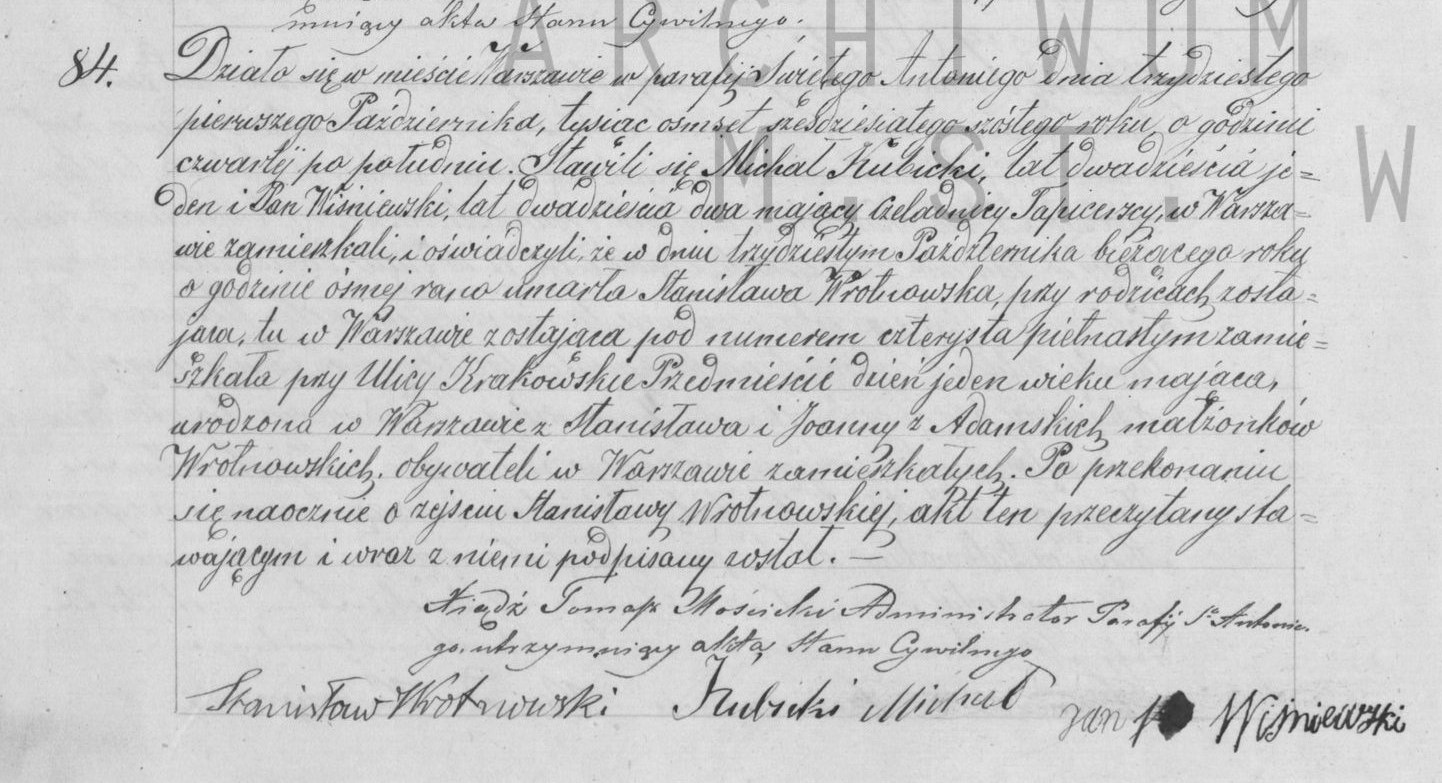 mniący akta Stanu Cywilnego.
84. Działo się w mieście Warszawie w parafij Świętego Antoniego dnia trzydziestego
pierwszego Października, tysiąc ośmset sześdziesiatego szóstego roku, o godzinie
czwartej po południu. Stawili się Michał Kubicki, lat dwadzieścia je=
den i Jan Wiśniewski, lat dwadzieścia dwa mający czeladnicy Tapicerscy, w Warsza=
wie zamieszkali, i oświadczyli, że w dniu trzydziestym Października bieżącego roku
o godzinie ósmej rano umarła Stanisława Wrotnowska, przy rodzicach zosta=
jąca, tu w Warszawie zostająca pod numerem czterysta pietnastym zamie=
szkała przy Ulicy Krakowskie Przedmieście dzień jeden wieku mająca,
urodzona w Warszawie z Stanisława i Joanny z Adamskich małżonków
Wrotnowskich, obywateli w Warszawie zamieszkałych. Po przekonaniu
się naocznie o zejściu Stanisławy Wrotnowskiej, akt ten przeczytany sta=
wającym i wraz z niemi podpisany został. —
Xiądz Tomasz Mościcki Administrator Parafij Sgo Antonie-
go, utrzymuiący akta Stanu Cywilnego
Stanisław Wrotnowski Kubicki Michał Jan Wiśniewski
ARCHIWUM
M. ST. W